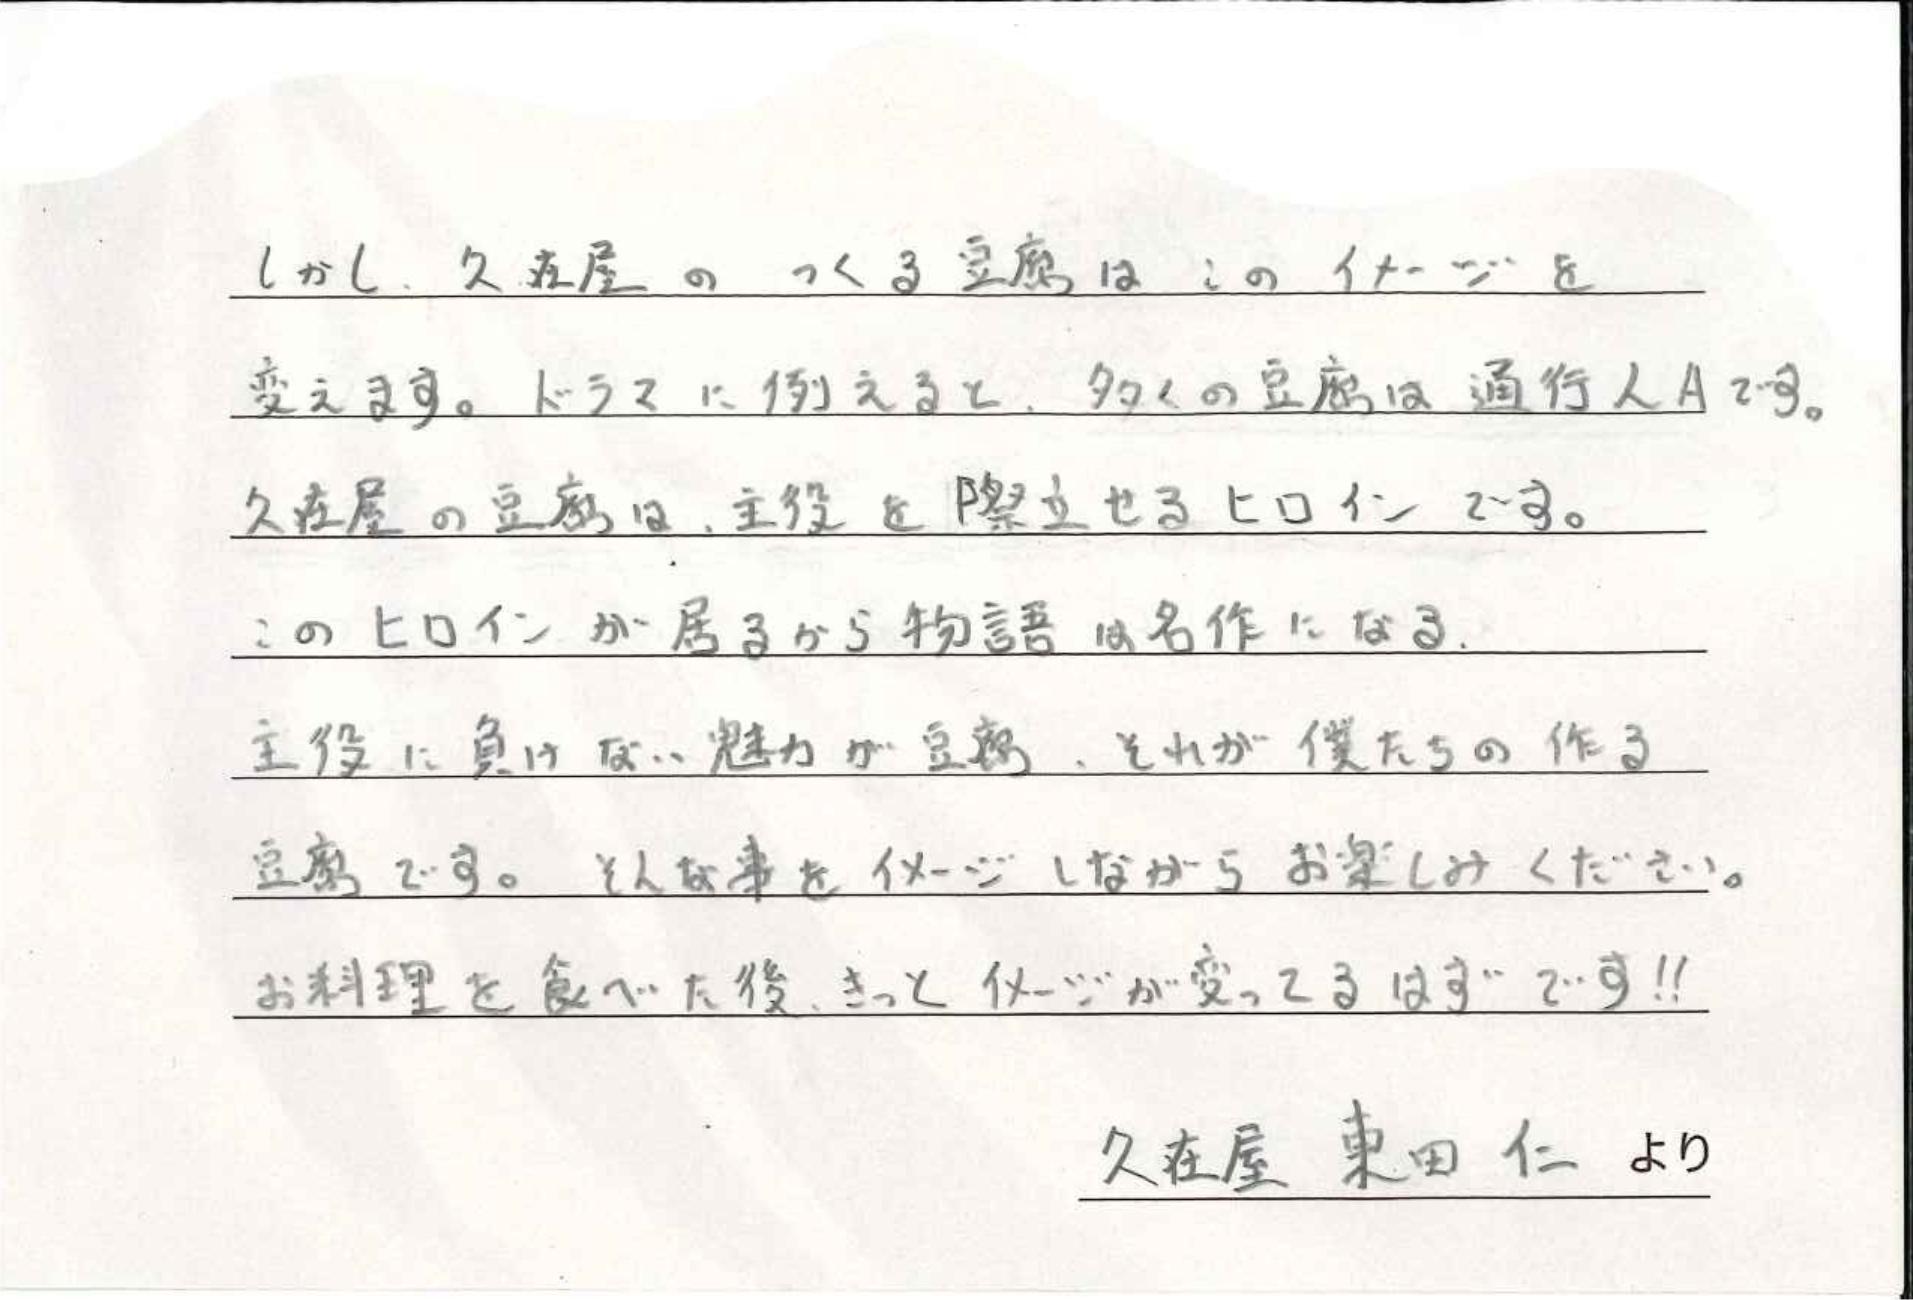 しかし、久在屋のつくる豆腐はこのイメージを
変えます。ドラマに例えると、多くの豆腐は通行人Aです。
久在屋の豆腐は、主役を際立せるヒロインです。
このヒロインが居るから物語は名作になる。
主役に負けない魅力が豆腐、それが僕たちの作る
豆腐です。そんな事をイメージしながらお楽しみください。
お料理を食べた後、きっとイメージが変ってるはずです!!
久在屋 東田 仁 より